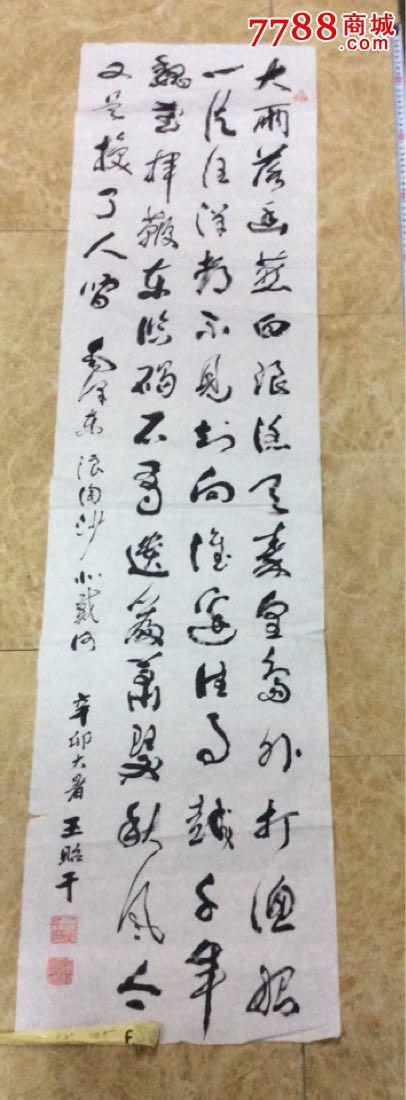 7788商城
.com
大雨落幽燕白浪滔天秦皇岛外打渔船
一片汪洋都不见知向谁边往事越千年
魏武挥鞭东临碣石有遗篇萧瑟秋风今
又是换了人间 毛泽东 浪淘沙 北戴河 辛卯大暑 王